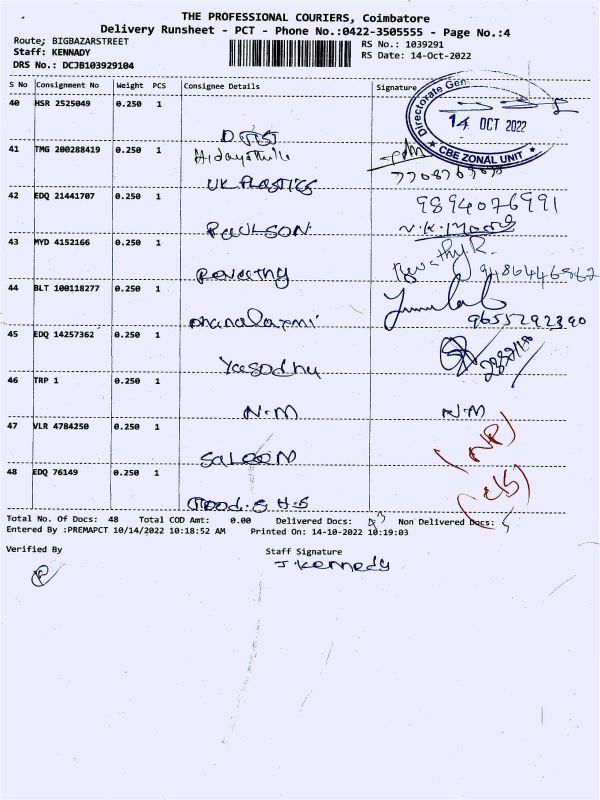 THE PROFESSIONAL COURIERS, Coimbatore
Delivery Runsheet - PCT - Phone No.:0422-3505555 - Page No.:4
Route; BIGBAZARSTREET
Staff: KENNADY
DRS No.: DCJB103929104
RS No.: 1039291
RS Date: 14-Oct-2022
S No Consignment No Weight PCS Consignee Details Signature
40 HSR 2525049 0.250 1
Directorate Gen
14 OCT 2022
CBE ZONAL UNIT
41 TMG 200288419 0.250 1
UK PLASTICS
42 EDQ 21441707 0.250 1 9894076991
PAULSON
43 MYD 4152166 0.250 1
Revathy R.
Revathy
44 BLT 100118277 0.250 1
Dhanalaxmi 9655292390
45 EDQ 14257362 0.250 1
Yasodha
46 TRP 1 0.250 1
N.M N.M
47 VLR 4784250 0.250 1
Saleem (NP)
48 EDQ 76149 0.250 1
Total No. Of Docs: 48 Total COD Amt: 0.00 Delivered Docs: 43 Non Delivered Docs: 5
Entered By :PREMAPCT 10/14/2022 10:18:52 AM Printed On: 14-10-2022 10:19:03
Verified By Staff Signature
J. Kennedy